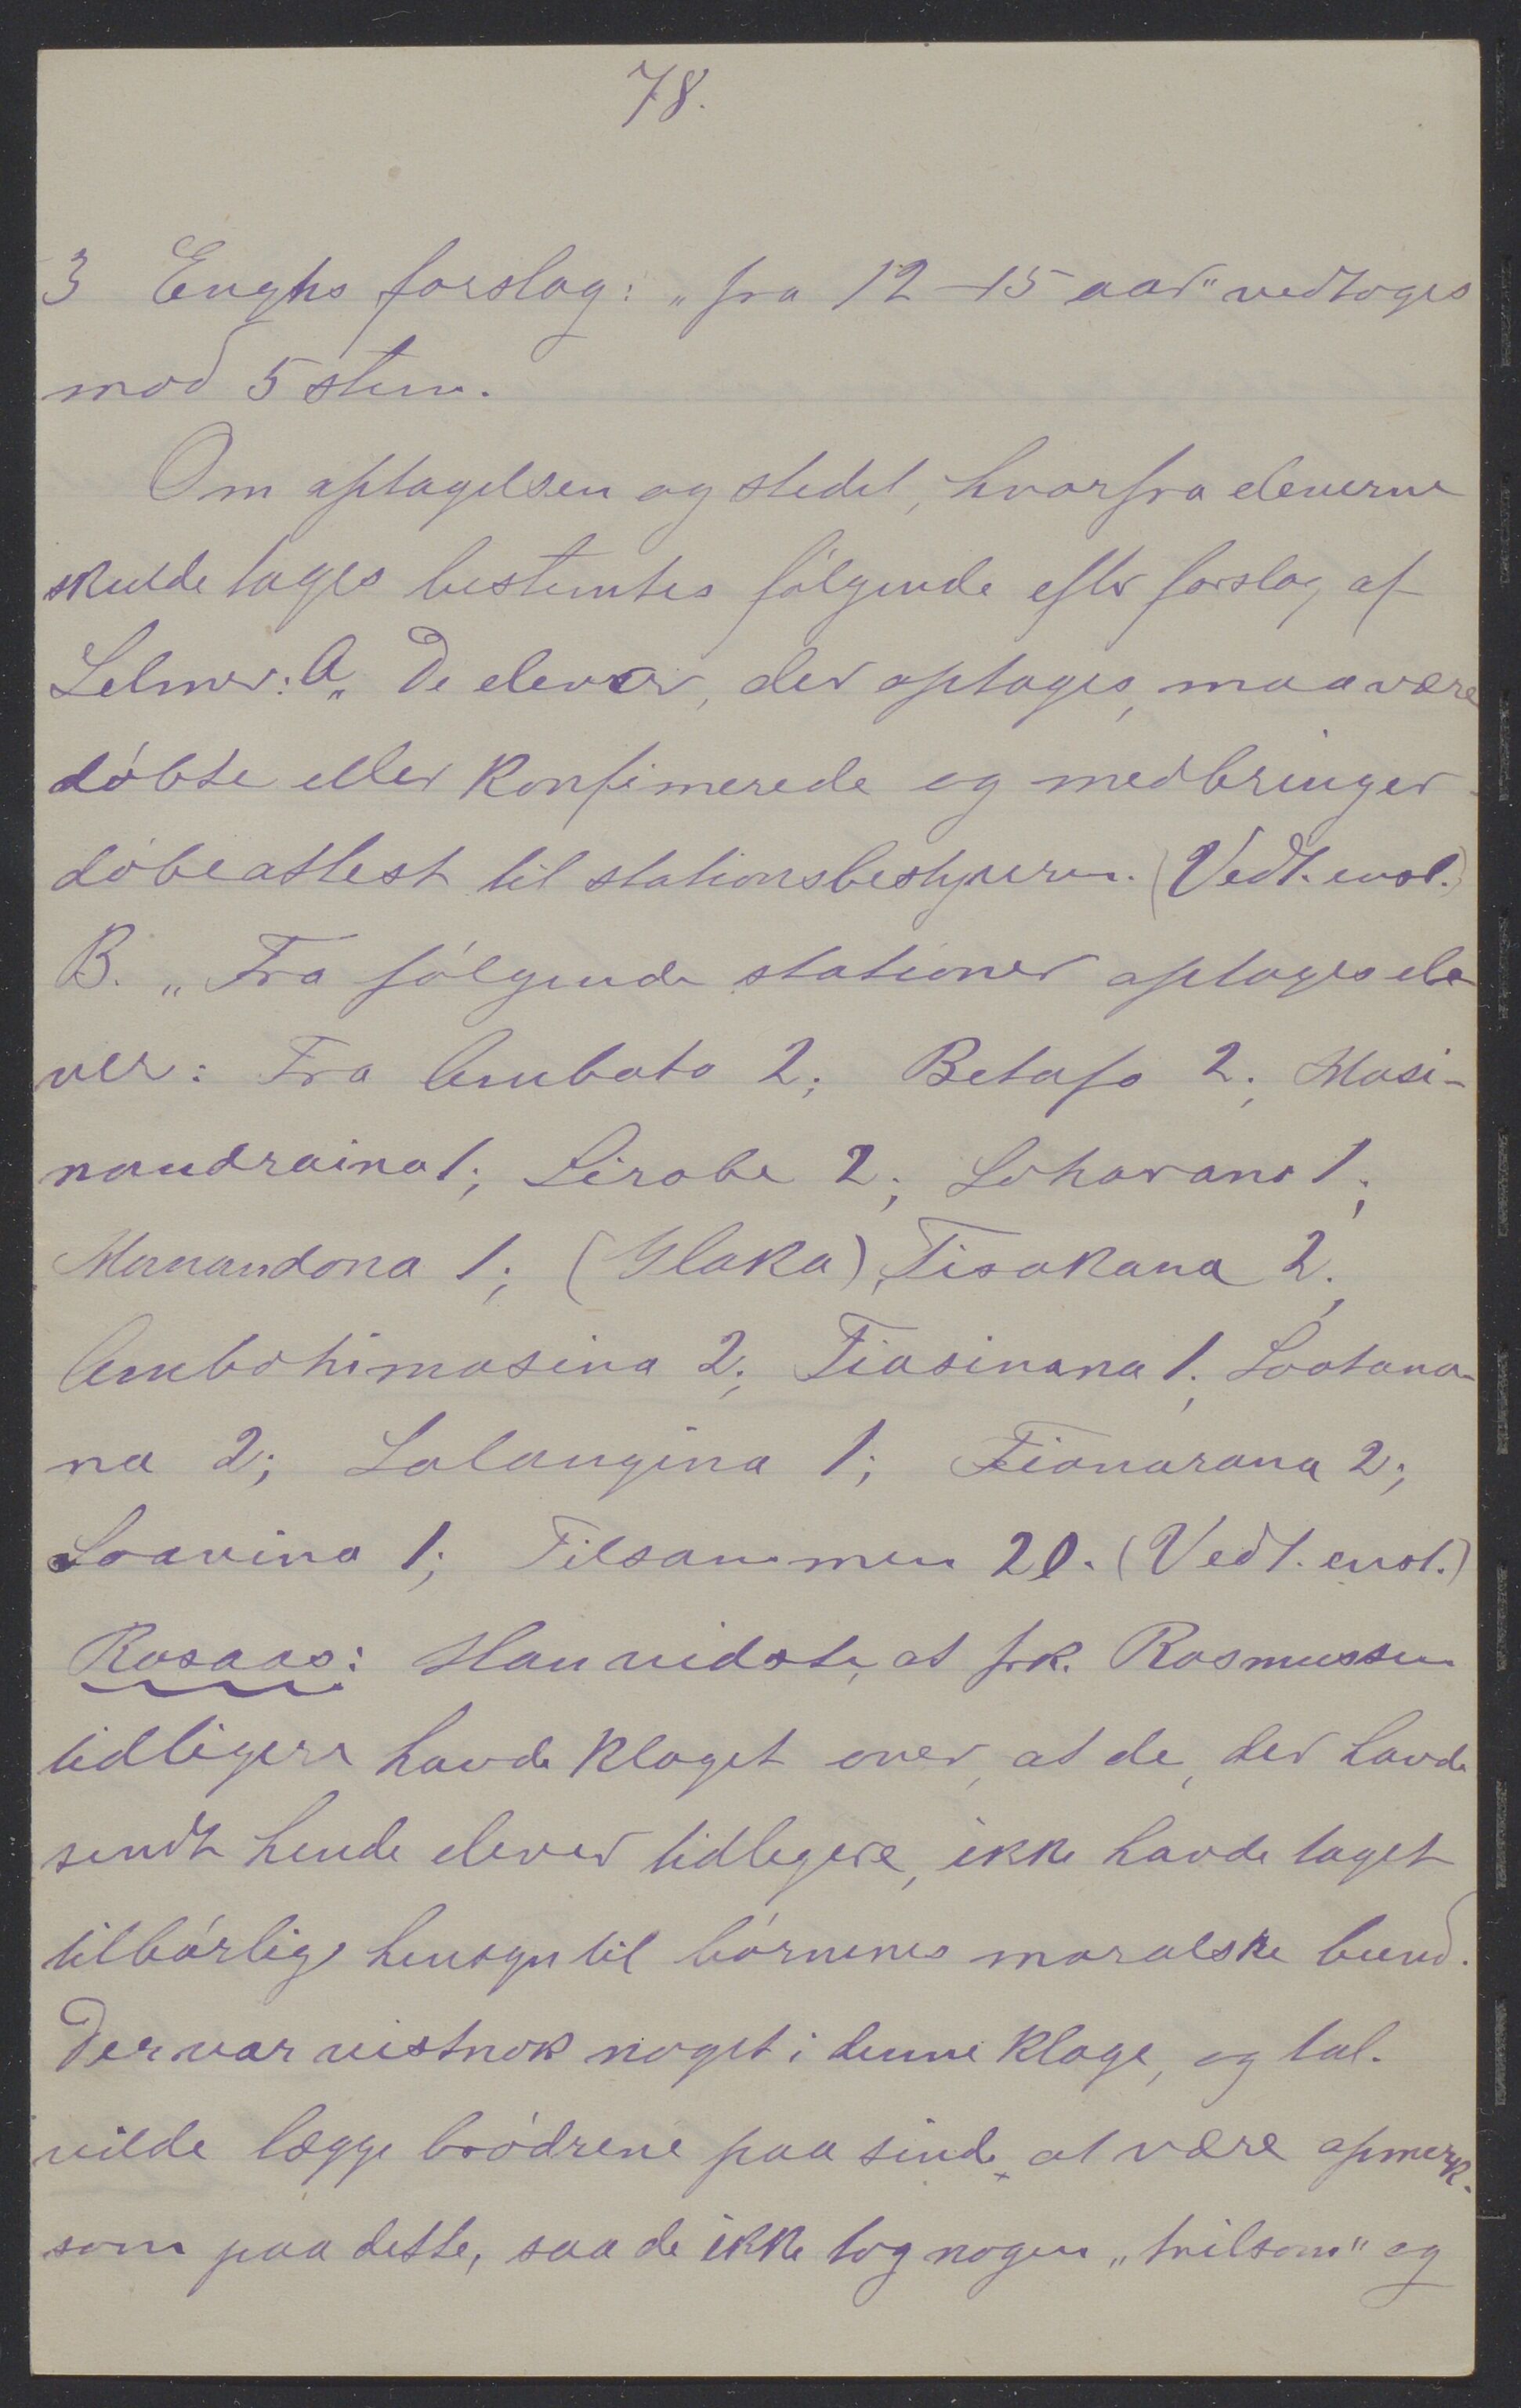 78.
3 Enghs forslag: „fra 12–15 aar" vedtoges
mod 5 stem.
Om optagelsen og stedet, hvorfra eleverne
skulde tages bestemtes følgende efter forslag af
Selmer: A „De elever, der optages, maa være
døbte eller konfimerede og medbringer
døbeattest til stationsbestyreren. (Vedt. enst.)
B. „Fra følgende stationer optages ele-
ver: Fra Ambato 2; Betafo 2; Masi-
nandraina 1; Sirabe 2; Loharano 1;
Manandona 1; (Ilaka), Fisakana 2;
Ambohimasina 2; Fiasinana 1; Soatana-
na 2; Lalangina 1; Fianarana 2;
Soavina 1; Tilsammen 20. (Vedt. enst.)
Rosaas: Han vidste, at frk. Rasmussen
tidligere havde klaget over, at de, der havde
sendt hende elever tidligere, ikke havde taget
tilbørlig hensyn til børnenes moralske bund.
Der var vistnok noget i denne klage, og tal.
vilde lægge brødrene paa sinde at være opmerk-
som paa dette, saa de ikke tog nogen „tvilsom" og